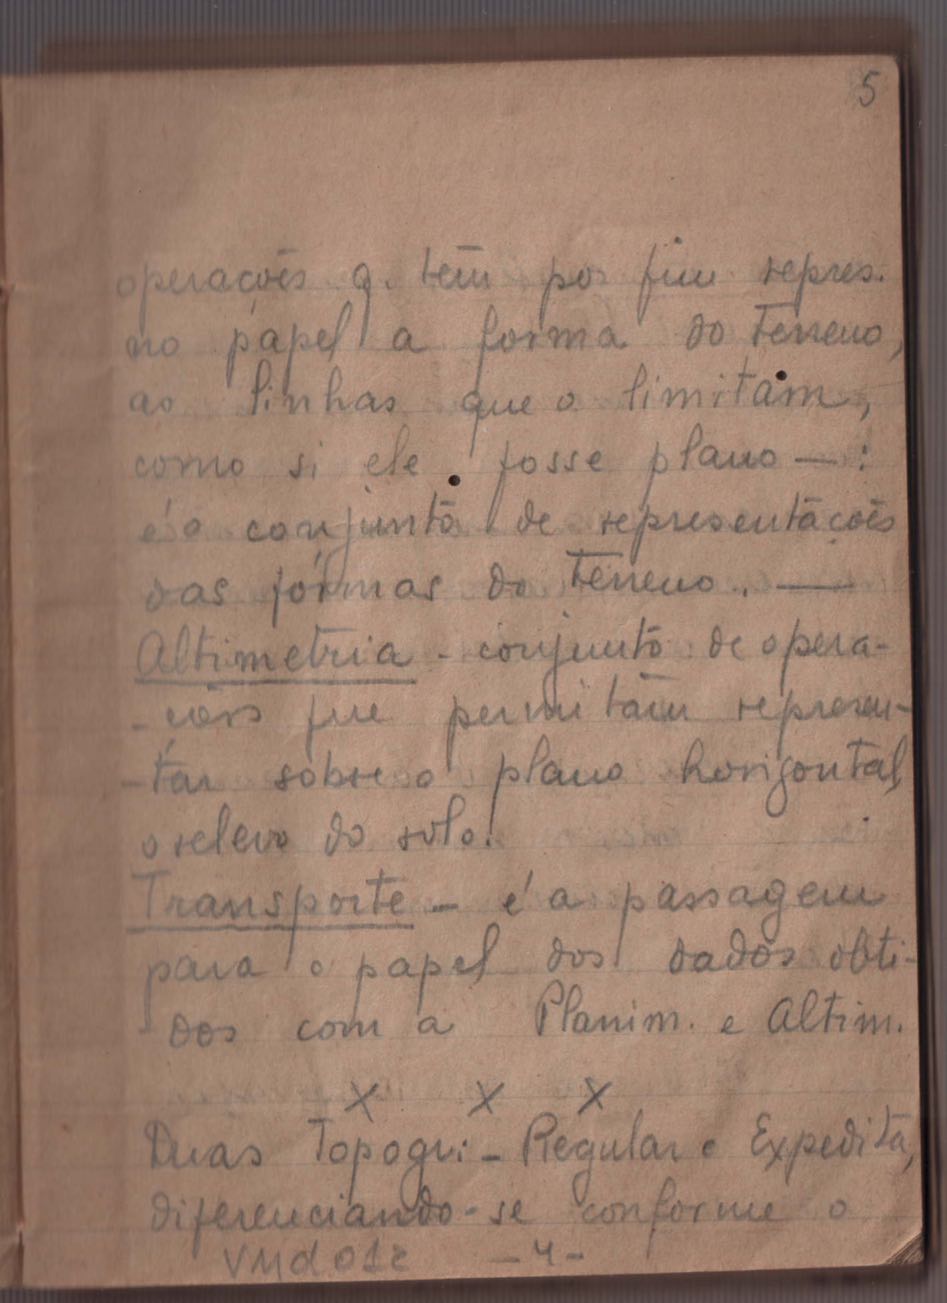 5
operações q. têm por fim repres.
no papel a forma do terreno,
as linhas que o limitam,
como si ele fosse plano — :
é o conjunto de representações
das formas do terreno. —
Altimetria - conjunto de opera-
-ções que permitam represen-
-tar sobre o plano horizontal,
o relevo do solo.
Transporte - é a passagem
para o papel dos dados obti-
dos com a Planim. e Altim.
X X X
Duas Topogr: - Regular e Expedita,
diferenciando-se conforme o
VMd012 -4-